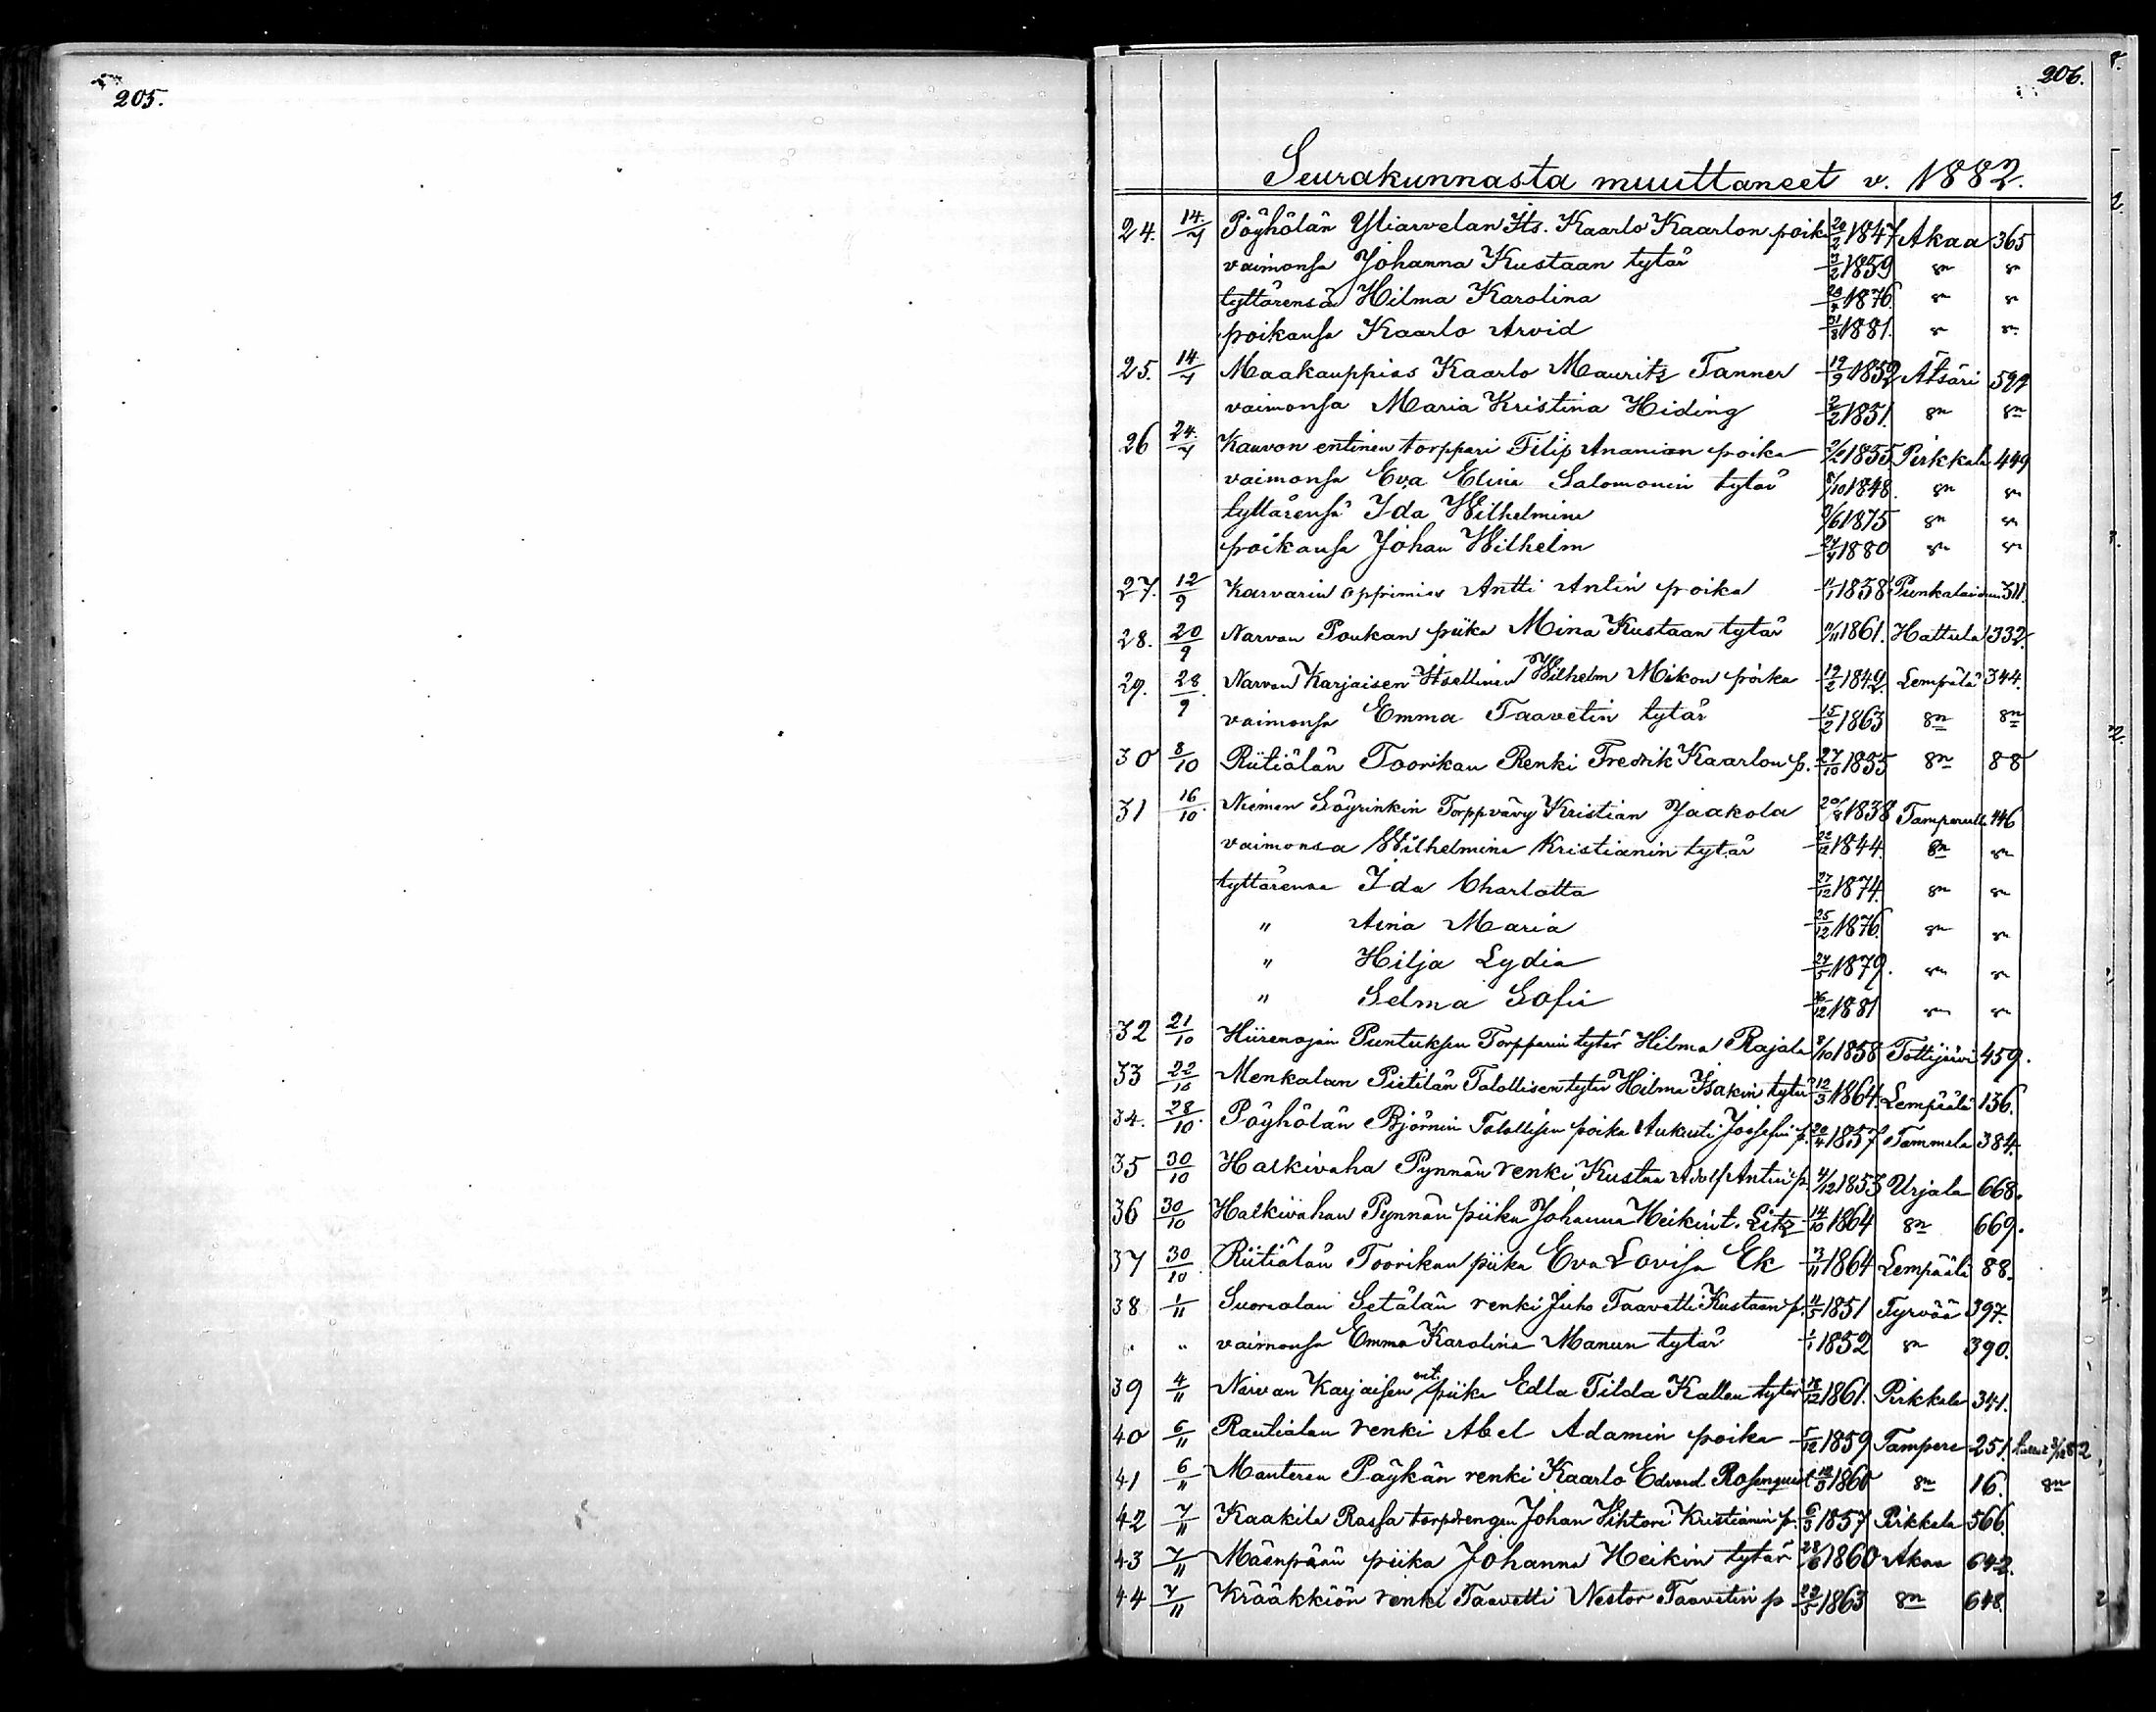 205.
206.
Seurakunnasta muuttaneet v. 1882.
24. 14/7 Pöyhölän Yliarvelan Its. Kaarlo Kaarlon poika 20/2 1847 Akaa 365
vaimonsa Johanna Kustaan tytär 1859 sn sn
tyttärensä Hilma Karolina 1876 sn sn
poikansa Kaarlo Arvid 1881. sn sn
25. 14/7 Maakauppias Kaarlo Mauritz Tanner 19/9 1852 Ätsäri 599
vaimonsa Maria Kristina Hiding 2/2 1851. sn sn
26 24/7 Kauvon entinen torppari Filip Ananian poika 1855 Pirkkala 449
vaimonsa Eva Elina Salomonin tytär 8/10 1848. sn sn
tyttärensä Ida Wilhelmina 1875 sn sn
poikansa Johan Wilhelm 1880 sn sn
27. 12/9 Karvarin oppimies Antti Antin poika 1858 Punkalaidun 311.
28. 20/9 Narvan Poukan piika Mina Kustaan tytär 11/11 1861. Hattula 332.
29. 28/9 Narvan Karjaisen Itsellinen Wilhelm Mikon poika 19/2 1842. Lempälä 344.
vaimonsa Emma Taavetin tytär 15/2 1863 sn sn
30 8/10 Riitiälän Toorikan Renki Fredrik Kaarlon p. 27/10 1855 sn 88
31 16/10 Niemen Torppvävy Kristian Jaakola 20/8 1838 Tamperelle 446
vaimonsa Wilhelmina Kristianin tytär 22/12 1844. sn sn
tyttärensa Ida Charlotta 27/12 1874. sn sn
" Aina Maria 25/12 1876. sn sn
" Hilja Lydia 24/5 1879. sn sn
" Selma Sofia 16/12 1881 sn sn
32 21/10 Hiirenojan Puntuksen Torpparin tytär Hilma Rajala 3/10 1858 Tottijärvi 459.
33 22/10 Menkalan Pietilän Talollisen tytär Hilma Isakin tytär 12/3 1864. Lempäälä 136.
34. 28/10. Pöyhölän Björnin Talollisen poika Aukusti Joosefin p. 20/4 1857 Tammela 384.
35 30/10 Halkivaha Pynnän renki Kustaa Adolf Antin p. 4/12 1853 Urjala 668.
36 30/10 Halkivahan Pynnän piika Johanna Heikin t. Litz 14/10 1864 sn 669.
37 30/10 Riitiälän Toorikan piika Eva Lovisa Ek 3/11 1864 Lempäälä 88.
38 1/11 Suonolan Setälän renki Juho Taavetti Kustaan p. 11/5 1851 Tyrvää 397.
" " vaimonsa Emma Karolina Manun tytär 1/1 1852 sn 390.
39 4/11 Narvan Karjaisen ent. piika Edla Tilda Kallen tytär 18/12 1861. Pirkkala 341.
40 6/11 Rautialan renki Abel Adamin poika 5/12 1859 Tampere 251. 82
41 6/11 Manteren Päykän renki Kaarlo Edvard Rosenquist 1860 sn 16. sn
42 7/11 Kaakila Rassa torpdrengen Johan Wihtori Kristianin p. 6/3 1857 Pirkkala 566.
43 7/11 Mäenpään piika Johanna Heikin tytär 28/6 1860 Akaa 642.
44 7/11 Krääkkiön renki Taavetti Nestor Taavetin p 22/5 1863 sn 648.